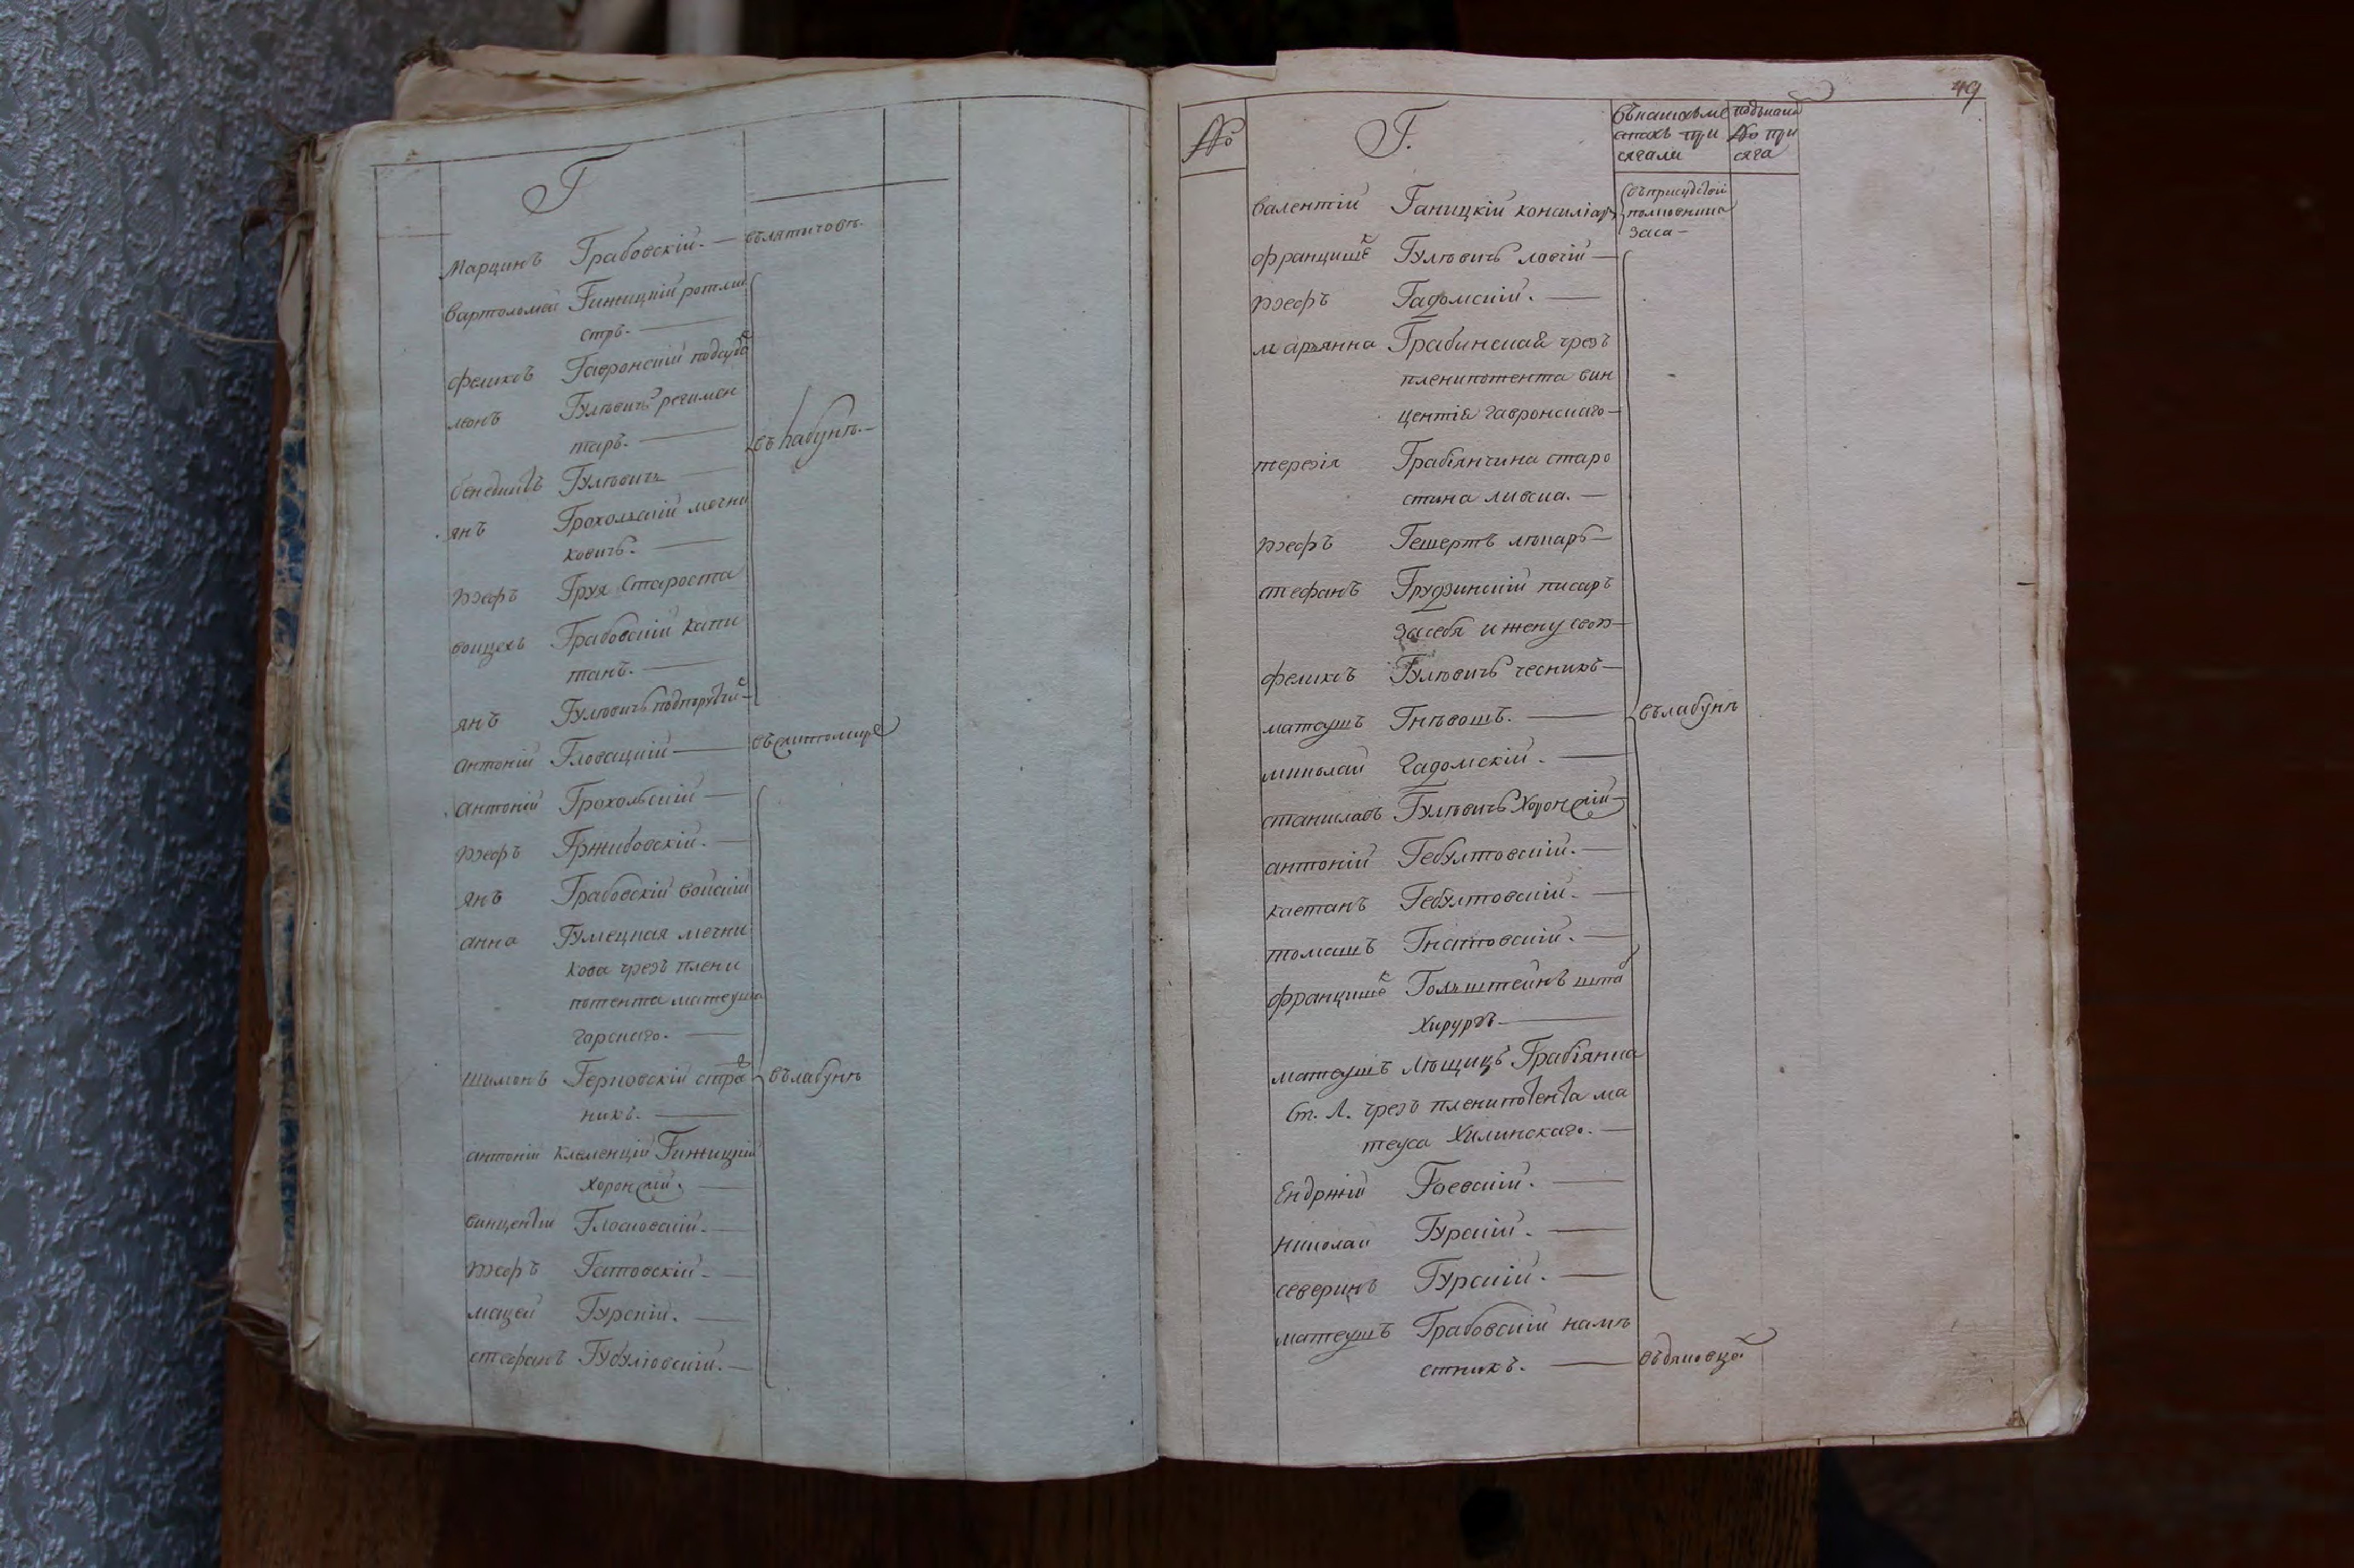 Г
Марцинъ Грабовскій. — въ лятичовѣ.
Бартоломей Гижицкій ротми
стръ. —
феликсъ Гавронскій подсудо
леонъ Гулѣвичъ регимен
таръ. —
бенедиктъ Гулѣвичъ —
янъ Грохольскій мечни
ковичъ. —
Іозефъ Груя Староста
войцехъ Грабовскій капи
танъ. —
въ лабунѣ. —
янъ Гулѣвичъ
антоній Гловацкій —
антоній Грохольскій —
Іозефъ Гржибовскій. —
янъ Грабовскій войскій
анна Гумецкая мечни
кова чрезъ плени
потента матеуша
горскаго. —
шимонъ Герловскій стра
никъ. —
въ лабунѣ
антоній клеменцій Гижицкій
хоронжій. —
винцентій Глосковскій. —
Іозефъ Гатовскій. —
мацей Гурскій. —
стефанъ —
49
№ Г. въ какихъ ме
стахъ при
сягали
№ при
сяга
валентій Ганицкій консиліаръ
въ присудствіи
полковника
Заса —
францишекъ Гулѣвичъ ловчій —
Іозефъ Гадомскій. —
марьянна Грабинская чрезъ
пленипотента вин
центія гавронскаго —
терезія Грабіянчина старо
стина ливска. —
Іозефъ Гешертъ лѣкаръ —
стефанъ Грудзинскій писаръ
За себя и жену свою —
феликсъ Гулѣвичъ чесникъ —
матеушъ Гнѣвошъ. —
въ лабунѣ
миколай Гадомскій. —
станиславъ Гулѣвичъ Хоронжій —
антоній Гебултовскій. —
каетанъ Гебултовскій. —
томашъ Гнатовскій. —
францишекъ Гольштейнъ штаб
хирургъ —
матеушъ Лѣщицъ Грабіянка
Ст. Л. чрезъ пленипотента ма
теуса Хилинскаго. —
Ендржій Гаевскій. —
Николай Гурскій. —
северинъ Гурскій. —
матеушъ Грабовскій намѣ
стникъ. —